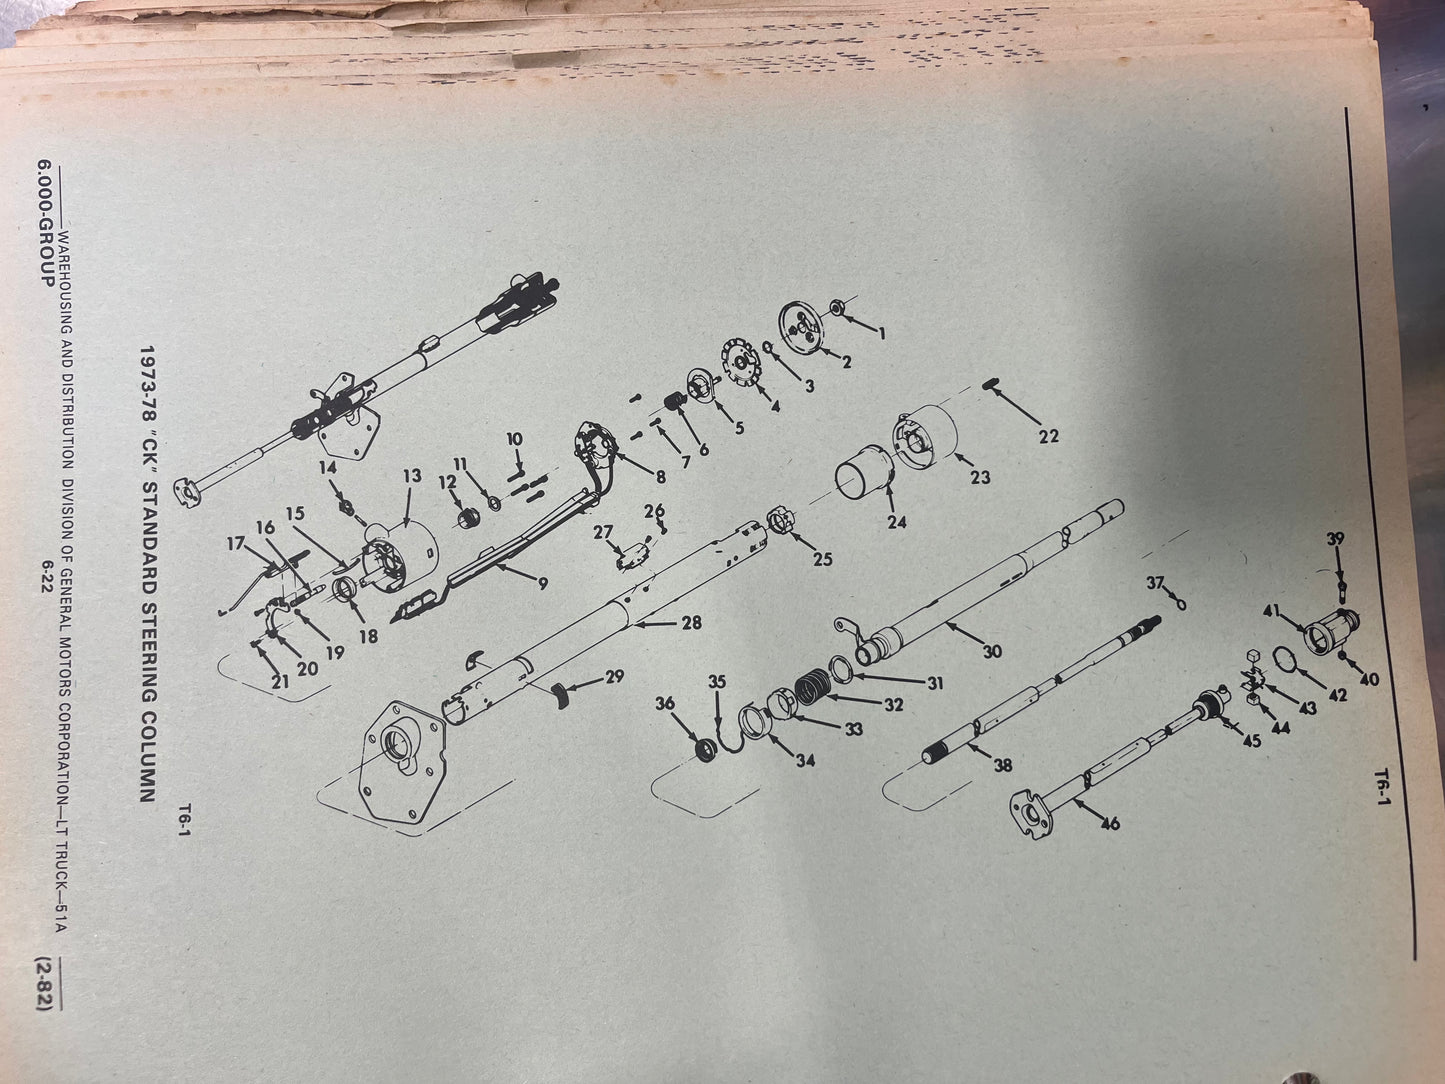 T6-1
1
2
3
4
5
6
7
8
9
10
11
12
13
14
15
16
17
18
19
20
21
22
23
24
25
26
27
28
29
30
31
32
33
34
35
36
37
38
39
40
41
42
43
44
45
46
T6-1
1973-78 "CK" STANDARD STEERING COLUMN
WAREHOUSING AND DISTRIBUTION DIVISION OF GENERAL MOTORS CORPORATION—LT TRUCK—51A
6.000-GROUP
6-22
(2-82)